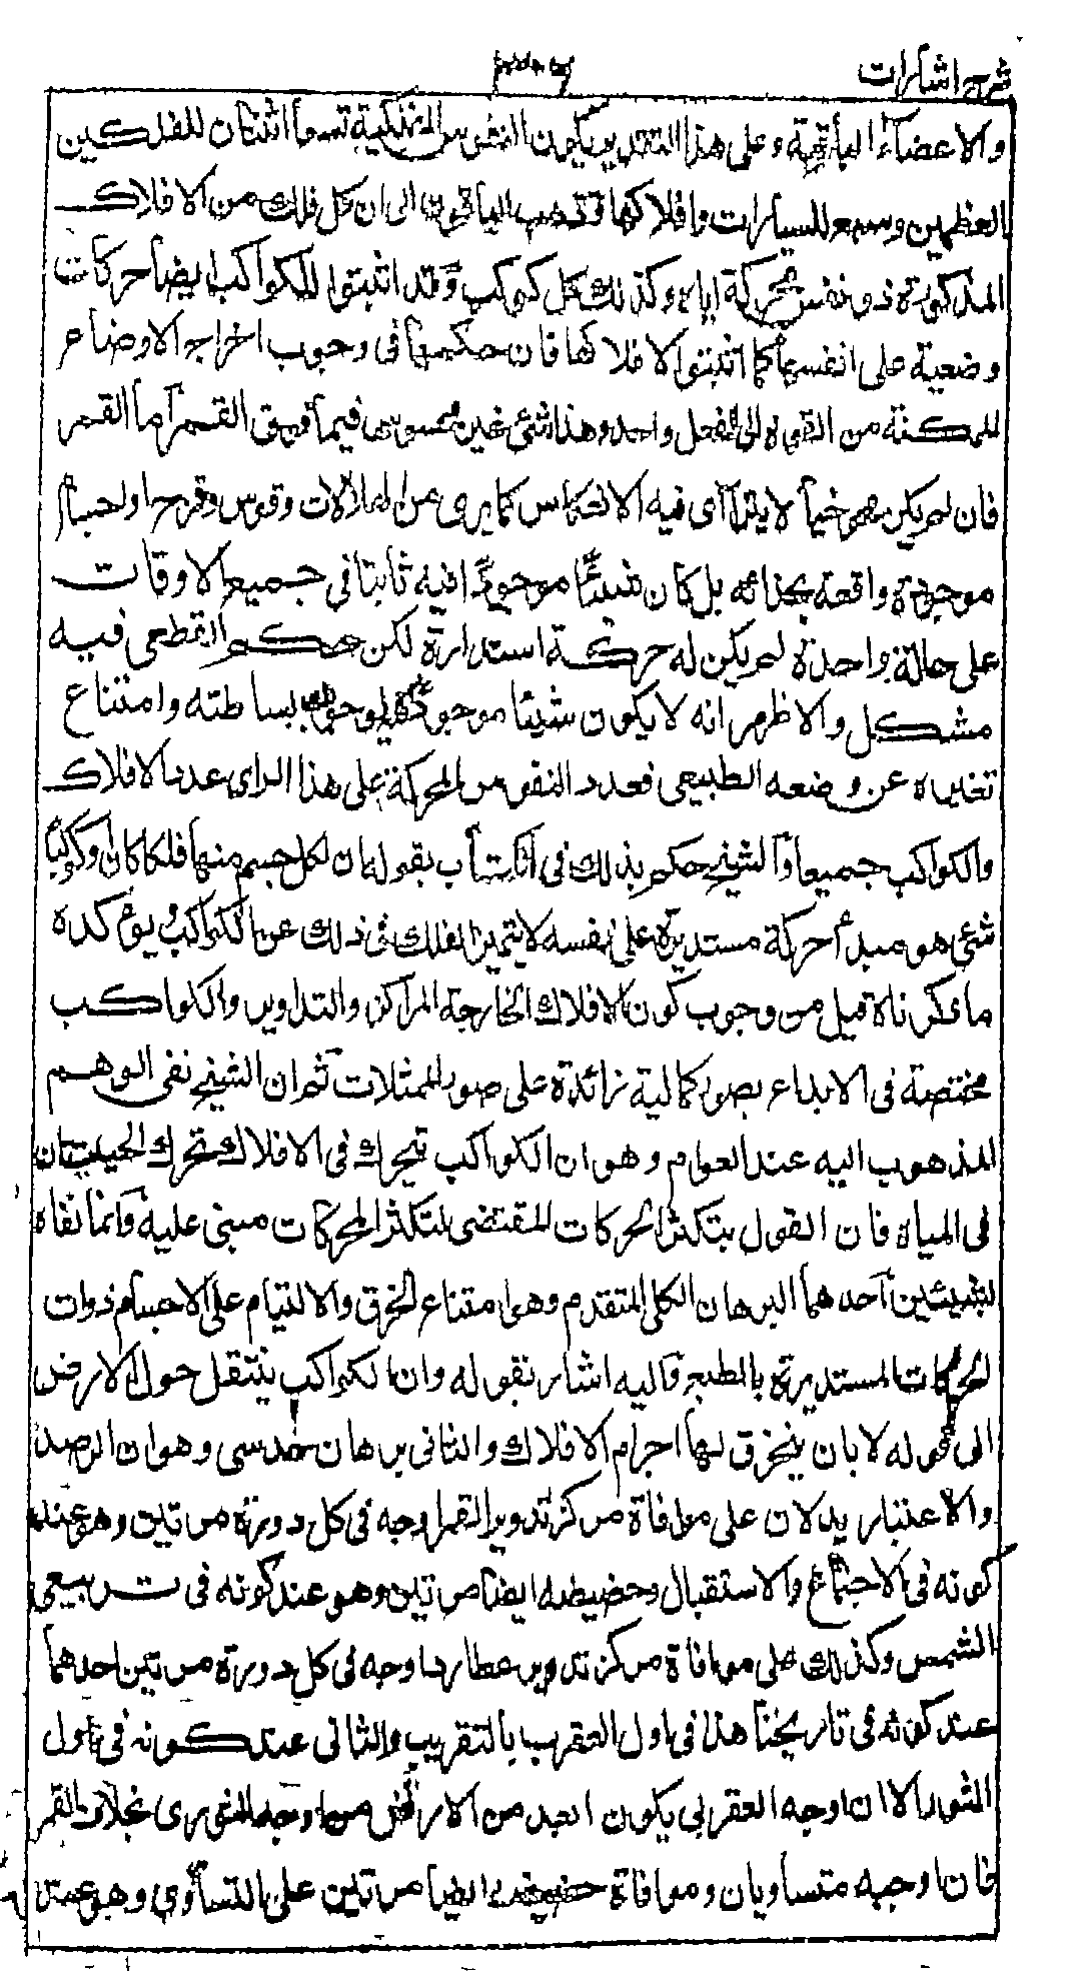 شرح اشارات
والاعضاء الباقية وعلى هذا التقدير يكون النفوس الفلكية تسعا اثنتان للفلكين
العظيمين وسبع للسيارات وافلاكها وذهب الباقون الى ان كل فلك من الافلاك
المذكورة ذو نفس محركة اياه وكذلك كل كوكب وقد اثبتوا للكواكب ايضا حركات
وضعية على انفسها كما اثبتوا لافلاكها فان حكمها فى وجوب اخراج الاوضاع
الممكنة من القوة الى الفعل واحد وهذا شئ غير محسوس فيما فوق القمر اما القمر
فان لم يكن محوه خيالا يتراآى فيه الانعكاس كما يرى من الهالات وقوس وقزح او اجساما
موجودة واقعة بحذائه بل كان شيئا موجودا فيه ثابتا فى جميع الاوقات
على حالة واحدة لم يكن له حركة استدارة لكن حكم القطعى فيه
مشكل والاظهر انه لا يكون شيئا موجودا فيه لوجوب بساطته وامتناع
تغيره عن وضعه الطبيعى فعدد النفوس المحركة على هذا الراى عدد الافلاك
والكواكب جميعا والشيخ حكم بذلك فى الكتاب بقوله ان لكل جسم منها فلكا كان او كوكبا
شئ هو مبدأ حركة مستديرة على نفسه لا يتميز الفلك فى ذلك عن الكواكب ويؤكده
ما ذكرناه قبل من وجوب كون الافلاك الخارجة المراكز والتداوير والكواكب
مختصة فى الابداع بصور كمالية زائدة على صور الممثلات ثم ان الشيخ نفى الوهم
المذهوب اليه عند العوام وهو ان الكواكب تتحرك فى الافلاك تحرك الحيتان
فى المياه فان القول بتكثر الحركات المقتضى لتكثر المحركات مبنى عليه وانما نفاه
بشيئين احدهما البرهان الكلى المتقدم وهو امتناع الخرق والالتيام على الاجسام ذوات
الحركات المستديرة بالطبع واليه اشار بقوله وان الكواكب ينتقل حول الارض
الى قوله لا بان ينخرق لها اجرام الافلاك والثانى برهان حدسى وهو ان الرصد
والاعتبار يدلان على موافاة مركز تدوير القمر اوجه فى كل دورة مرتين وهو عند
كونه فى الاجتماع والاستقبال وحضيضه ايضا مرتين وهو عند كونه فى تربيعى
الشمس وكذلك على موافاة مركز تدوير عطارد اوجه فى كل دورة مرتين احدهما
عند كونه فى تاريخنا هذا فى اول العقرب بالتقريب والثانى عند كونه فى اول
الثور الا ان اوجه العقربى يكون ابعد من الارض من اوجه الثورى بخلاف القمر
فان اوجيه متساويان وموافاة حضيضه ايضا مرتين على التساوى وهو عند